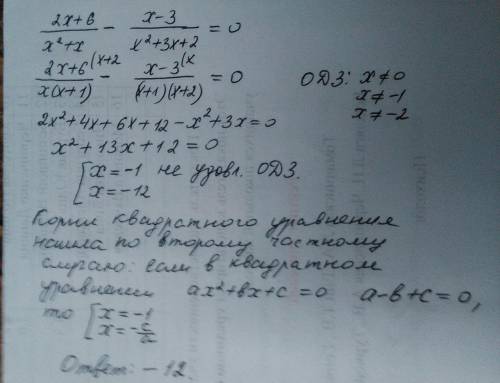 (2x+6)/(x²+x) − (x−3)/(x²+3x+2) = 0
(2x+6 ⁽ˣ⁺²)/(x(x+1)) − (x−3 ⁽ˣ)/((x+1)(x+2)) = 0 ОДЗ: x≠0
x≠−1
x≠−2
2x²+4x+6x+12−x²+3x=0
x²+13x+12=0
[x=−1 не удовл. ОДЗ.
[x=−12
Корни квадратного уравнения
нашла по второму частному
случаю: если в квадратном
уравнении ax²+bx+c=0 a−b+c=0,
то [x=−1
[x=−c/a
Ответ: −12.